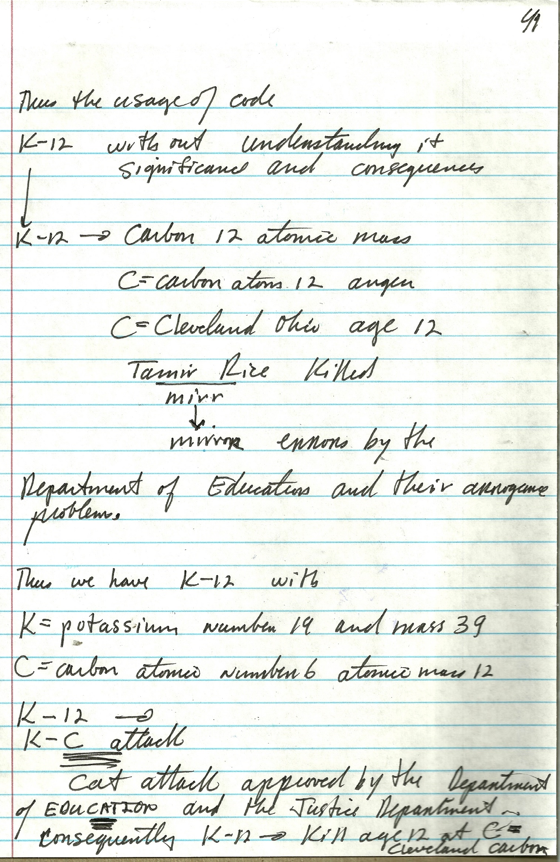 4/9
Thus the usage of code
K-12 without understanding it
significance and consequences
K-12 → Carbon 12 atomic mass
C=carbon atoms 12 anger
C=Cleveland Ohio age 12
Tamir Rice Killed
mirr
mirror errors by the
Department of Education and their arrogance
problems.
Thus we have K-12 with
K=potassium number 19 and mass 39
C=carbon atomic number 6 atomic mass 12
K-12 →
K-C attack
Cat attack approved by the Department
of EDUCATION and the Justice Department
consequently K-12 → Kill age 12 at C=
Cleveland Carbon